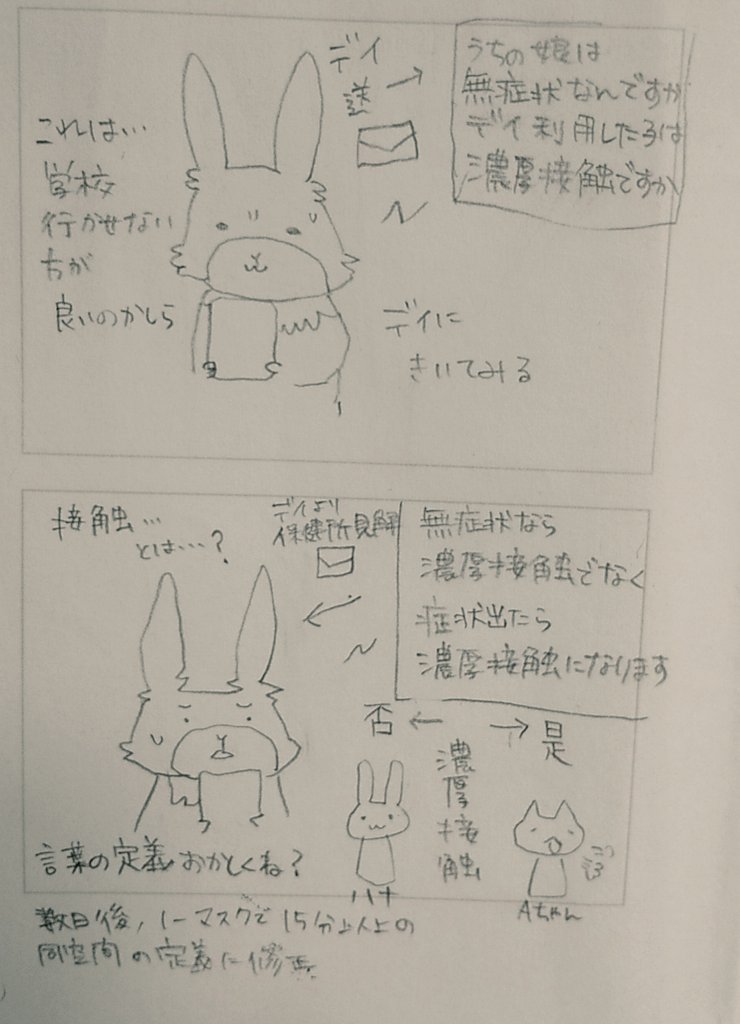 デイ
送
うちの娘は
無症状なんですが
デイ利用した子は
濃厚接触ですか
これは…
学校
行かせない
方が
良いのかしら
デイに
きいてみる
接触…
とは…?
デイより
保健所見解
無症状なら
濃厚接触でなく
症状出たら
濃厚接触になります
否
是
濃厚接触
ハナ
Aちゃん
言葉の定義おかしくね?
数日後、ノーマスクで15分以上の
同空間の定義に修正